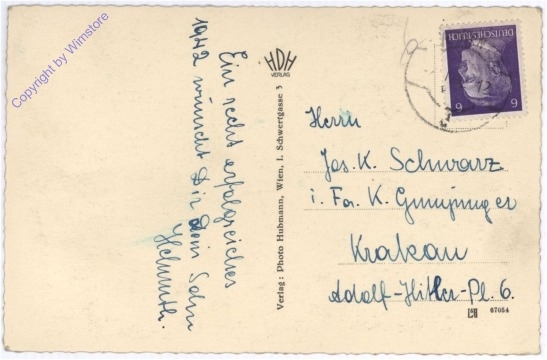 Copyright by Wimstore
Ein recht erfolgreiches
1942 wünscht Dir Dein Sohn
Helmuth.
HDH
VERLAG
Verlag: Photo Hubmann, Wien, I. Schwertgasse 3
DEUTSCHES REICH
6 6
Herrn
Jos. K. Schwarz
i. Fa. K.
Krakau
Adolf-Hitler-Pl. 6.
67054